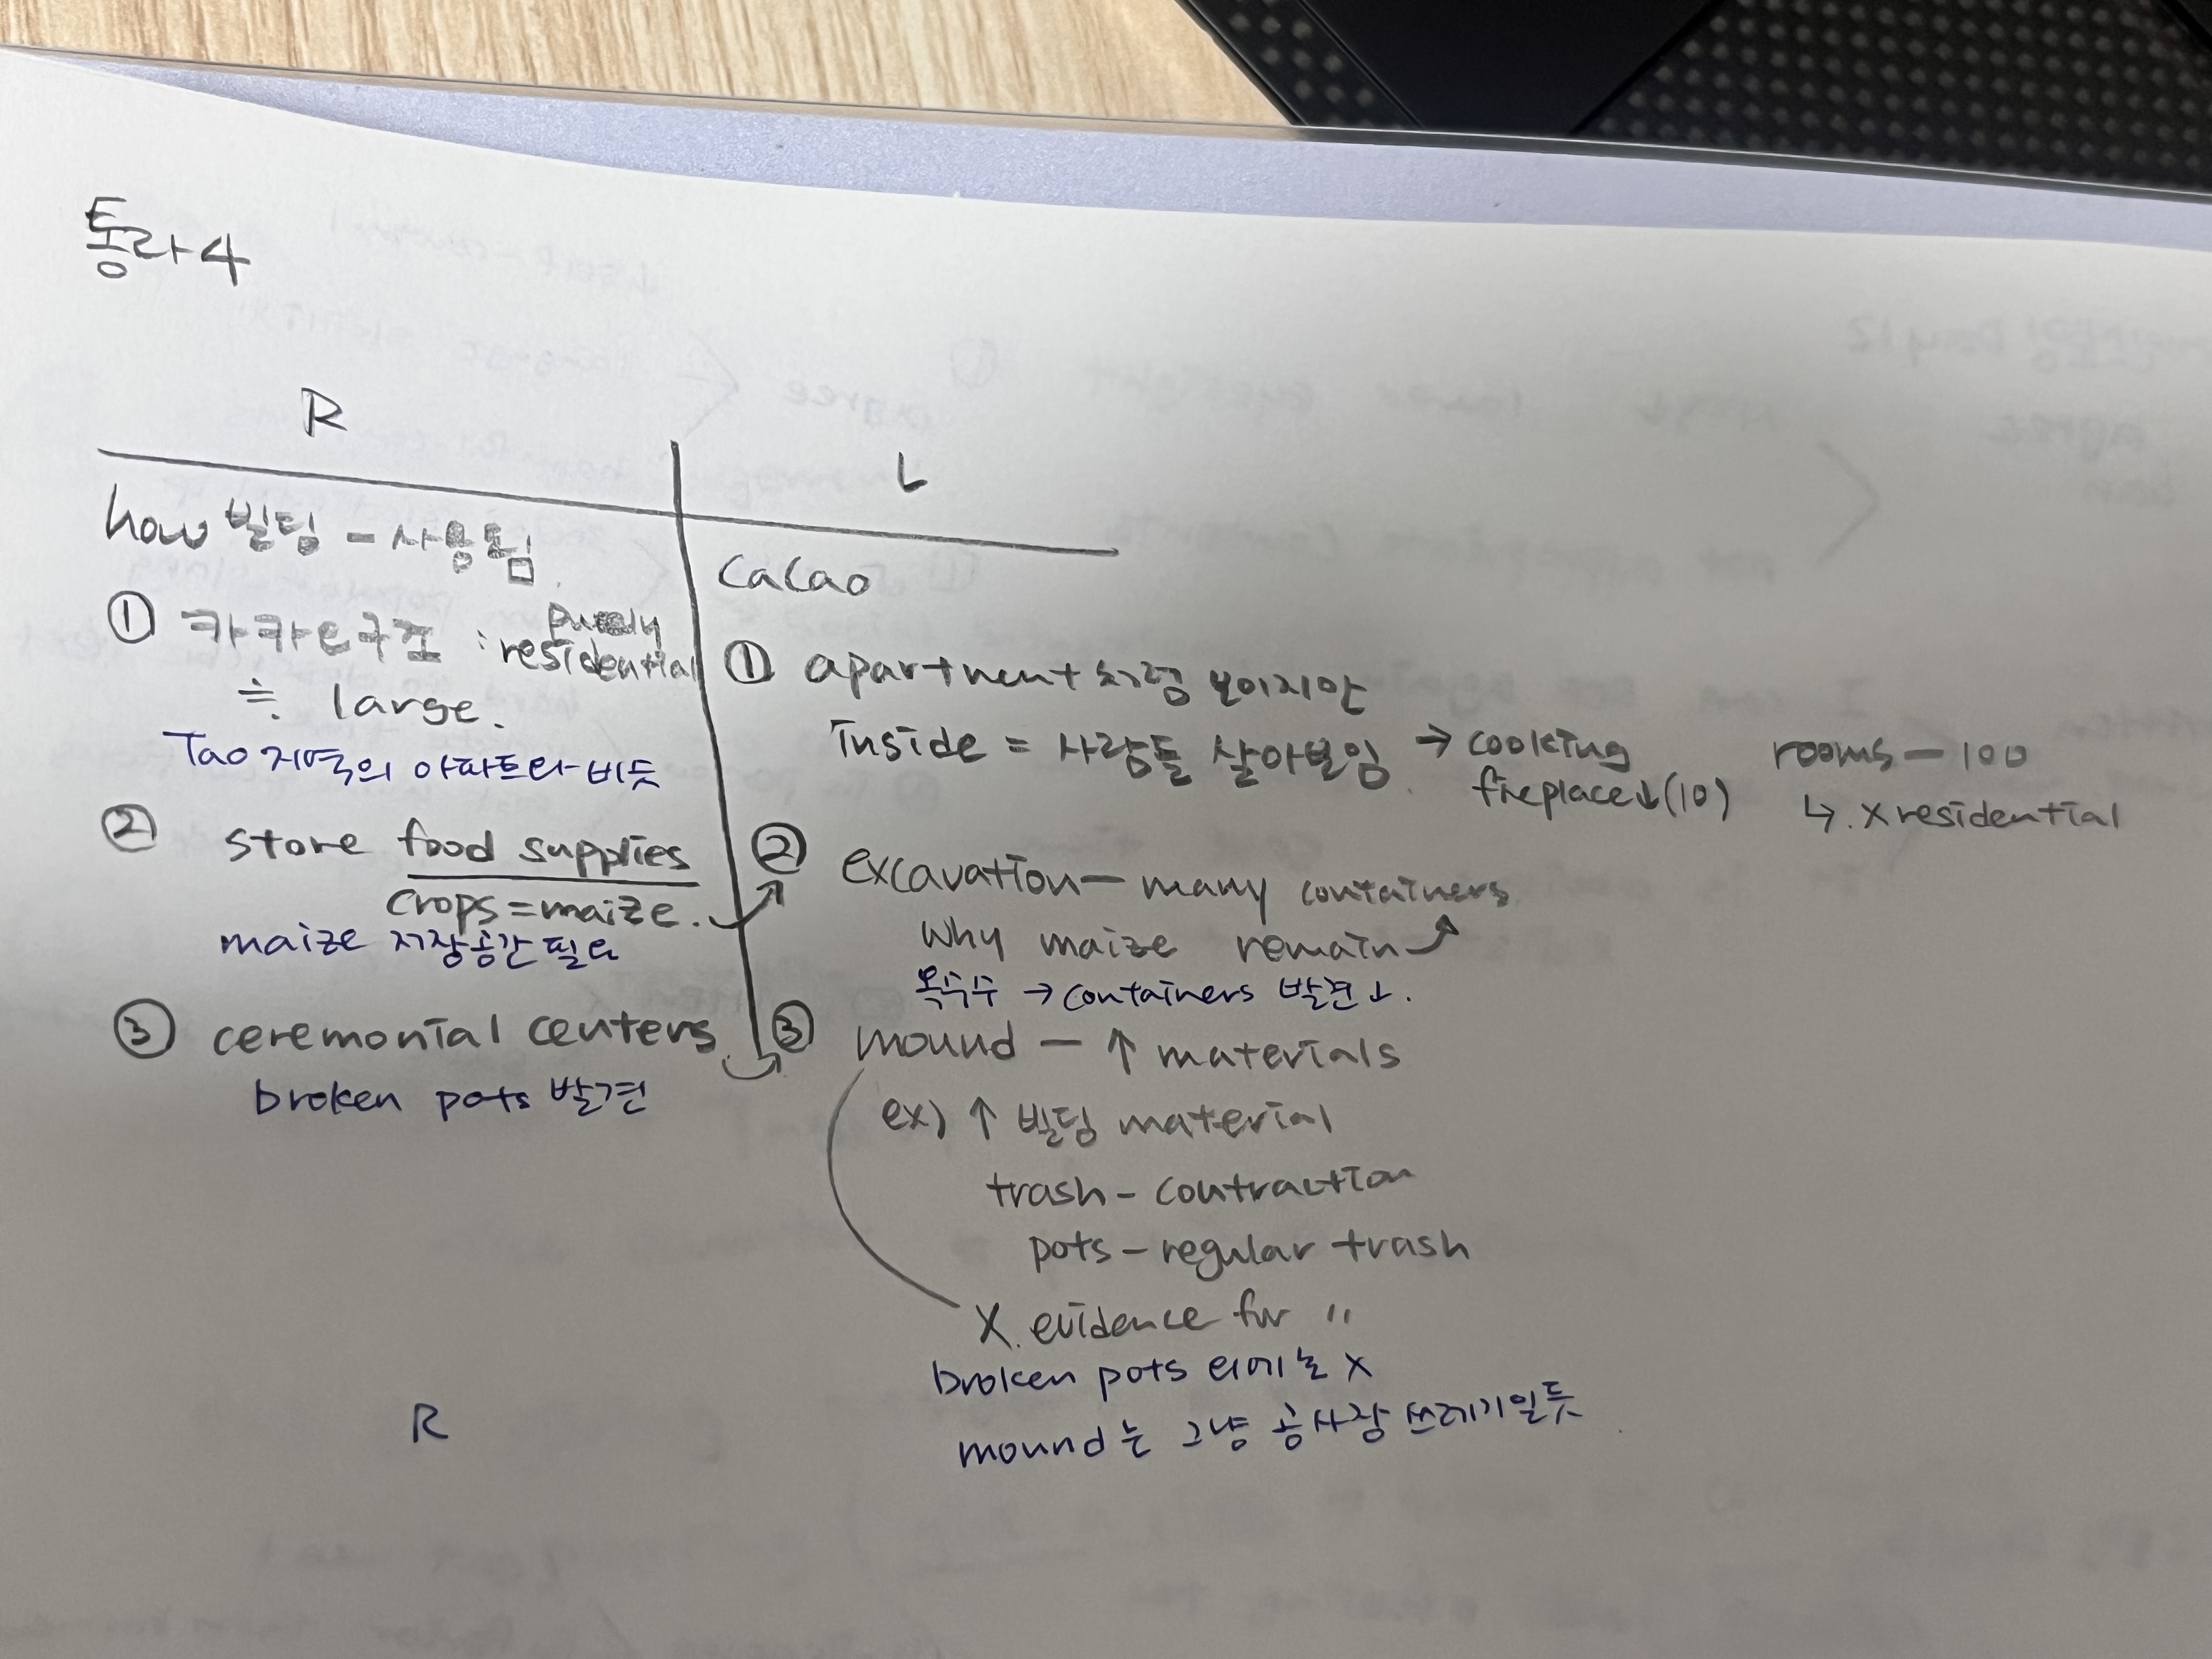 통라4
R
how 빌딩 - 사용됨
① 카카오구조 : purely residential
≒ large.
Tao 지역의 아파트와 비슷
② store food supplies
crops = maize.
maize 저장공간 필요
③ ceremonial centers
broken pots 발견
R
L
cacao
① apartment처럼 보이지만
inside = 사람들 살아보임 → cooking fireplace↓(10) rooms - 100
↳ x residential
② excavation - many containers
why maize remain
옥수수 → containers 발견↓.
③ mound - ↑ materials
ex) ↑ 빌딩 material
trash - contraction
pots - regular trash
X. evidence for 〃
broken pots 외에는 x
mound는 그냥 공사장 쓰레기일듯